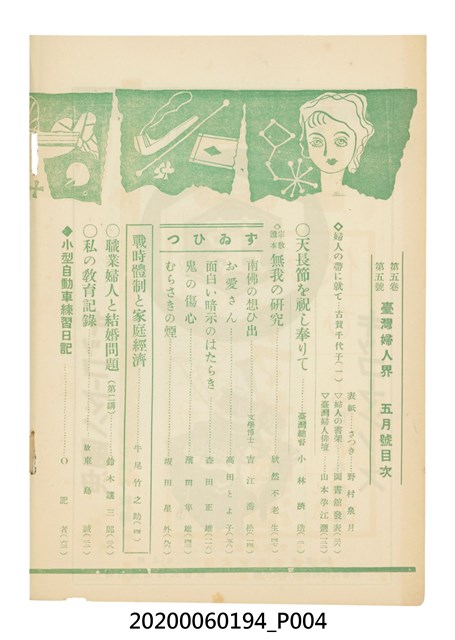 第五卷 第五號 臺灣婦人界 五月號目次
表紙…さつき…野村泉月
▽婦人の書架……圖書館發表
▽臺灣婦人俳壇……山本孕江選
◇婦人の帶に就て…古賀千代子(一)
〇天長節を祝し奉りて……臺灣總督 小林躋造
◇宗敎讀本 無我の硏究
ずゐひつ
南佛の想ひ出……文學博士
お愛さん……高田とよ子
面白い暗示のはたらき……森田正雄
鬼の傷心……濱田隼雄
むらさきの煙……坂田星外
戰時體制と家庭經濟……牛尾竹之助
〇職業婦人と結婚問題(第二講)……鈴木讓三郎
〇私の敎育記錄……東島誠
◆小型自動車練習日記……〇記者
20200060194_P004